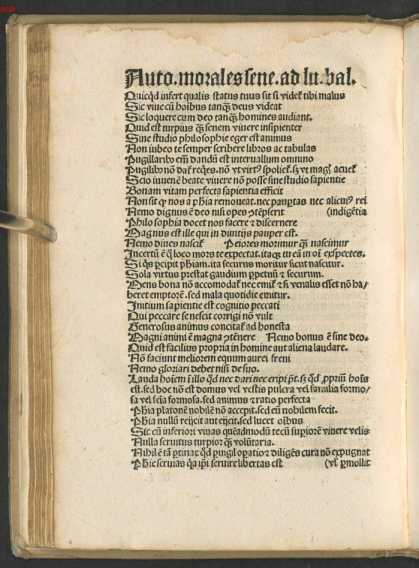 Auto.morales sene.ad lu.bal.
Quicqd infert qualis status tuus sit si videt̃ tibi malus
Sic viue cū hoibus tanq̃ deus videat
Sic loquere cum deo tanq̃ homines audiant.
Quid est turpius q̃ senem viuere insipienter
Sine studio philosophie eger est animus
Non iubeo te semper scribere libros ac tabulas
Pugillaribꝰ em̄ dandū est interuallum omnino
Scio inuenē beate viuere nō posse sine studio sapientie
Bonam vitam perfecta sapientia efficit
Non sit q̃ nos a phia remoueat.nec paup̃tas nec
Nemo dignus ē deo nisi opes ꝯtēpserit (indigētia
Philosophia docet nos facere ⁊ discernere
Magnus est ille qui in diuitijs pauper est.
Nemo diues nascit̃ Peiores morimur q̃ nascimur
Incertū ē q̃ loco mors te expectat.ita qꝫ tu eā in oī loco expectes.
Si q̃s pcipit phiam.ita securus moritur sicut nascitur.
Sola virtus prestat gaudium ꝑpetuū ⁊ securum.
Mens bona nō accomodat̃ nec emit̃ ⁊ si venalis esset nō ha/
beret emptorē.sed mala quotidie emitur.
Initium sapientie est cognitio peccati
Qui peccare se nescit corrigi nō vult
Generosius animus concitat̃ ad honesta
Magni animi ē magna ꝯtēnere Nemo bonus ē sine deo.
Quid est facilius propria in homine aut aliena laudare.
Nō faciunt meliorem equum aurei freni
Nemo gloriari debet nisi de suo.
Lauda hoiem ī illo qd nec dari nec eripi pt.sꝫ qd ꝓpriū hoīs
est.sed hoc nō est domus vel vestis pulcra vel familia formo/
sa vel seīa formosa.sed animus ⁊ ratio perfecta
Phia platonē nobilē nō accepit.sed eū nobilem fecit.
Phia nullū reijcit aut eijcit.sed lucet oībus
Sic cū inferiori viuas quēadmodū tecū supiorē viuere velis
Nulla seruitus turpior q̃ volūtaria.
Nihil ē tā ꝑtinax qd puigil opatio ⁊ diligēs cura nō expugnat
Phie seruias qꝫ ipi seruire libertas est (vl̃ ꝑmollit